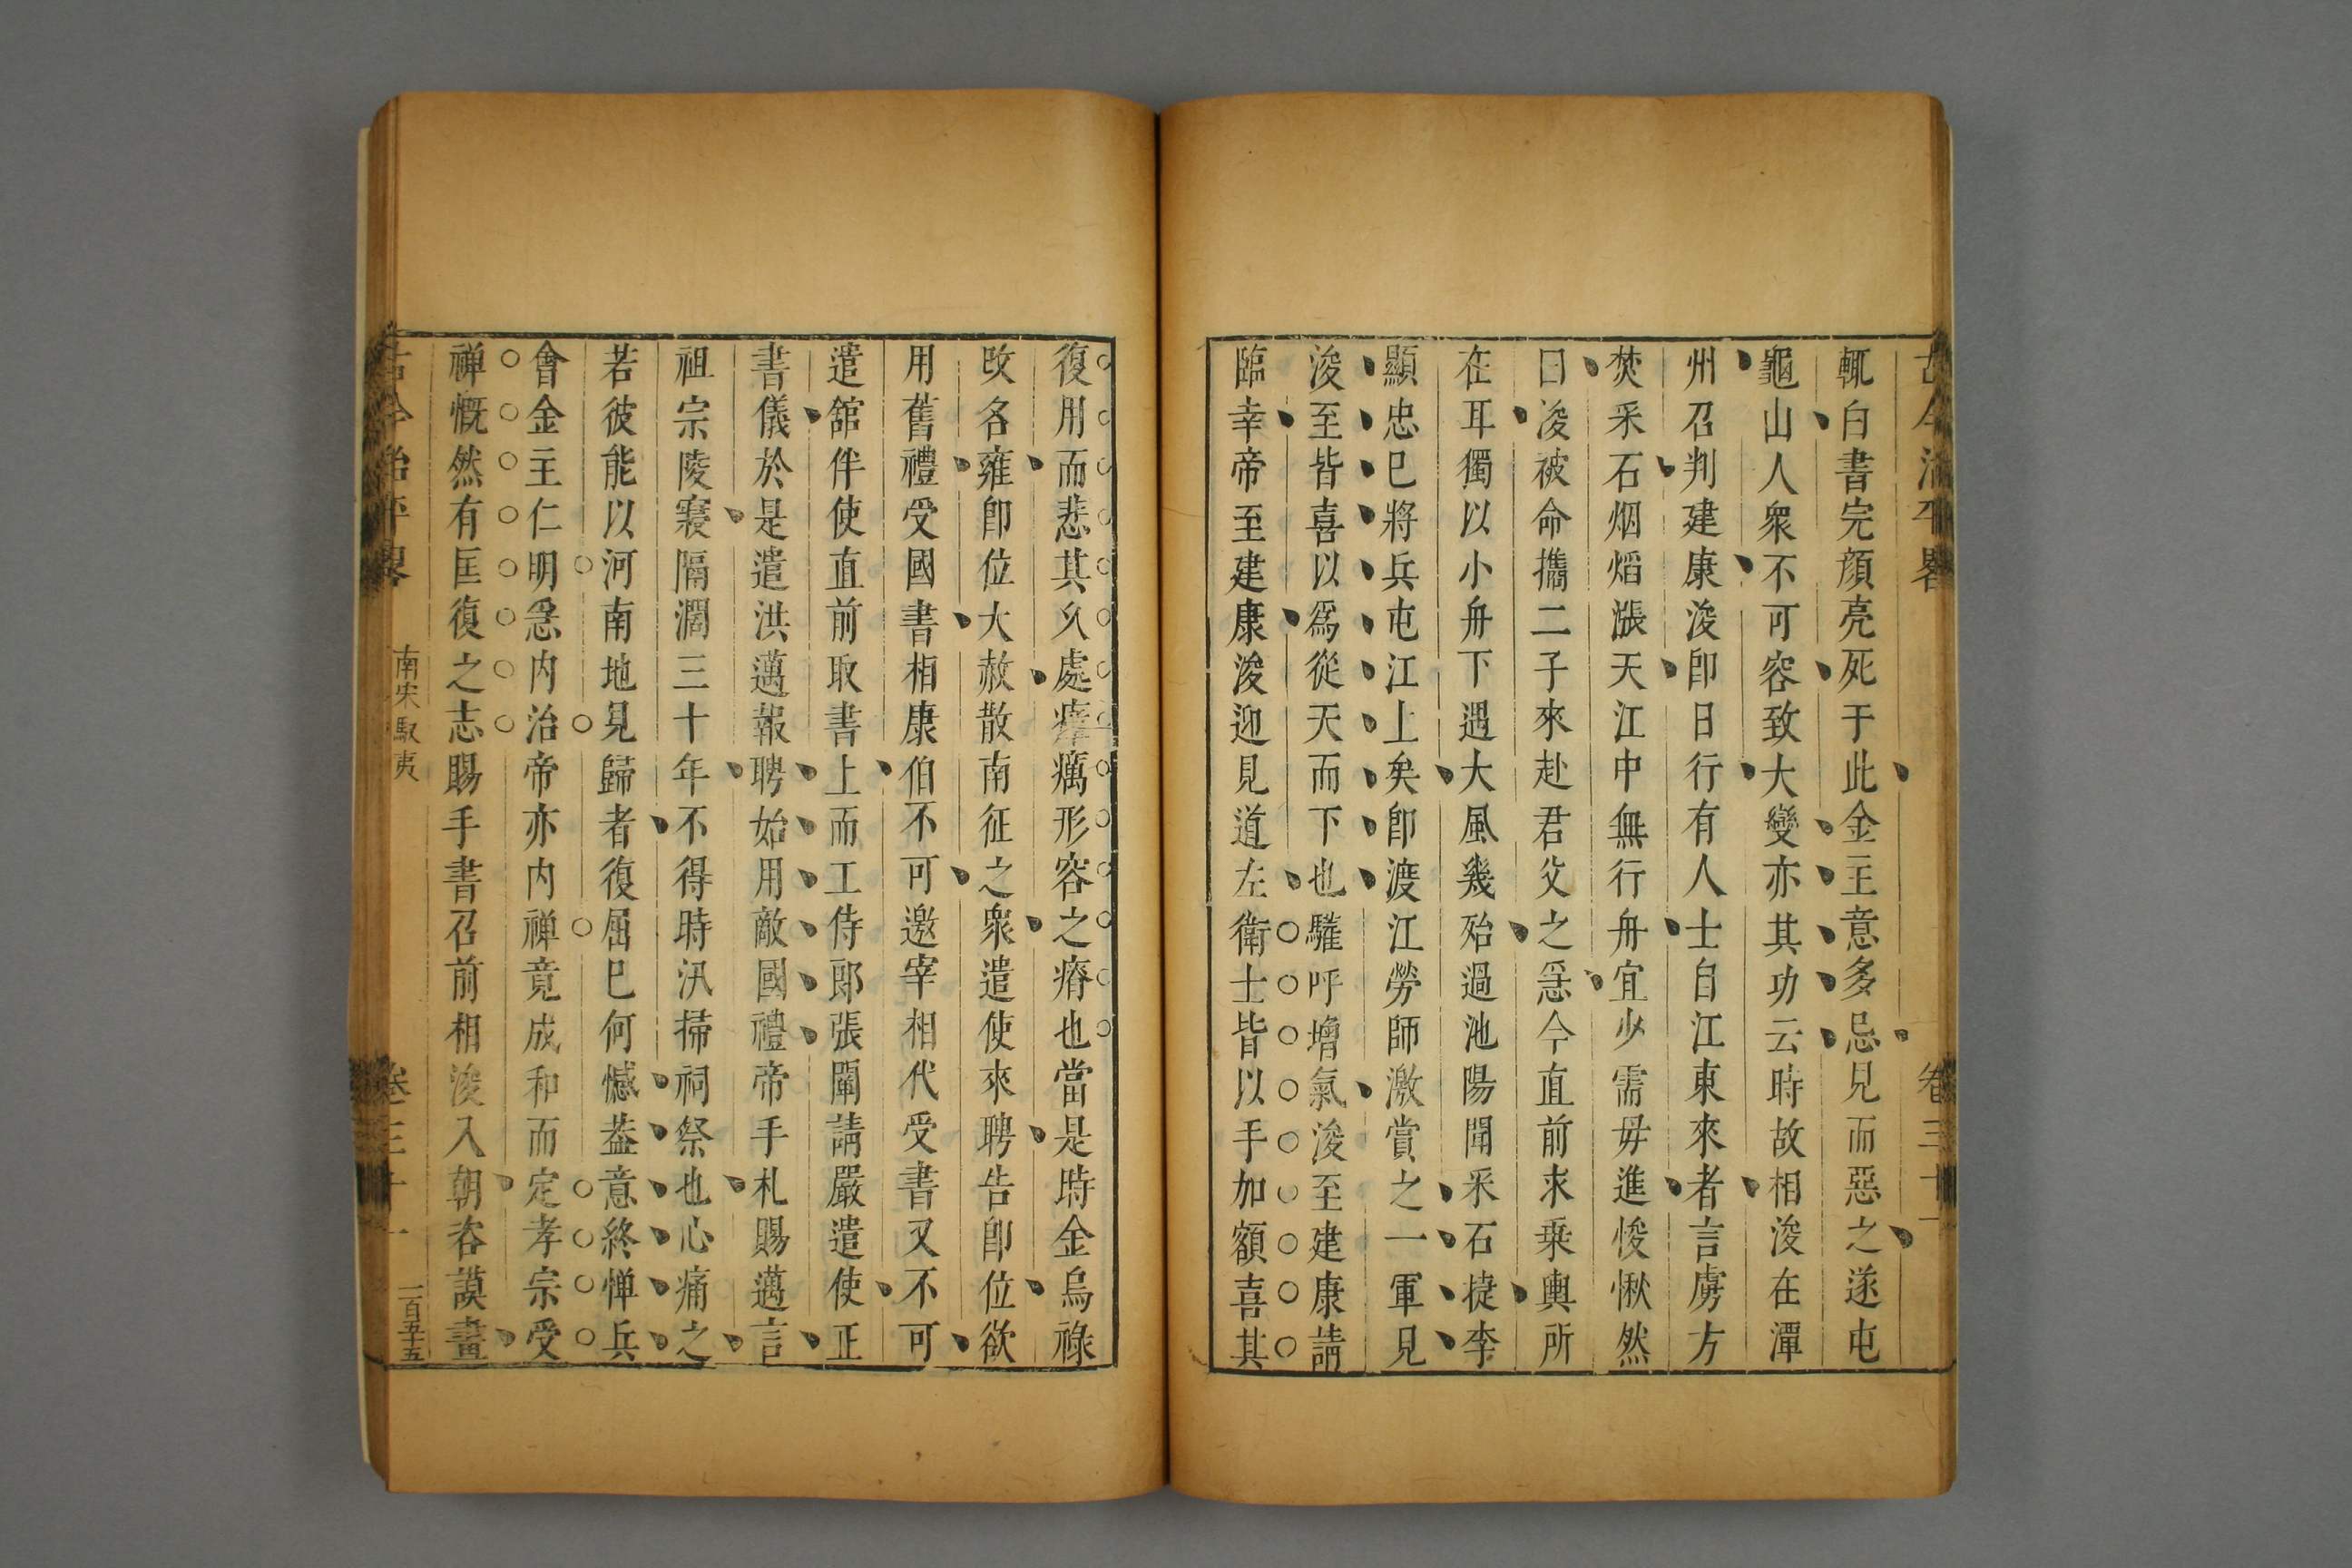 古今治平畧 卷三十一
輒白書完顔亮死于此金主意多忌見而惡之遂屯
龜山人衆不可容致大變亦其功云時故相浚在潭
州召判建康浚卽日行有人士自江東來者言虜方
焚采石烟熖漲天江中無行舟宜少需毋進悛愀然
曰浚被命擕二子來赴君父之惥今直前求乗輿所
在耳獨以小舟下遇大風幾殆過池陽聞采石捷李
顯忠已將兵屯江上矣卽渡江勞師激賞之一軍見
浚至皆喜以爲從天而下也驩呼增氣浚至建康請
臨幸帝至建康浚迎見道左衛士皆以手加額喜其
復用而悲其久處瘴癘形容之瘠也當是時金烏祿
改名雍卽位大赦散南征之衆遣使來聘告卽位欲
用舊禮受國書相康伯不可邀宰相代受書又不可
遣舘伴使直前取書上而工侍郎張闡請嚴遣使正
書儀於是遣洪邁報聘始用敵國禮帝手札賜邁言
祖宗陵寢隔濶三十年不得時汛掃祠祭也心痛之
若彼能以河南地見歸者復屈巳何憾葢意終憚兵
會金主仁明惥内治帝亦内禅竟成和而定孝宗受
禅慨然有匡復之志賜手書召前相浚入朝咨謨畫
古今治平畧 南宋馭夷 卷三十一 一百五十五